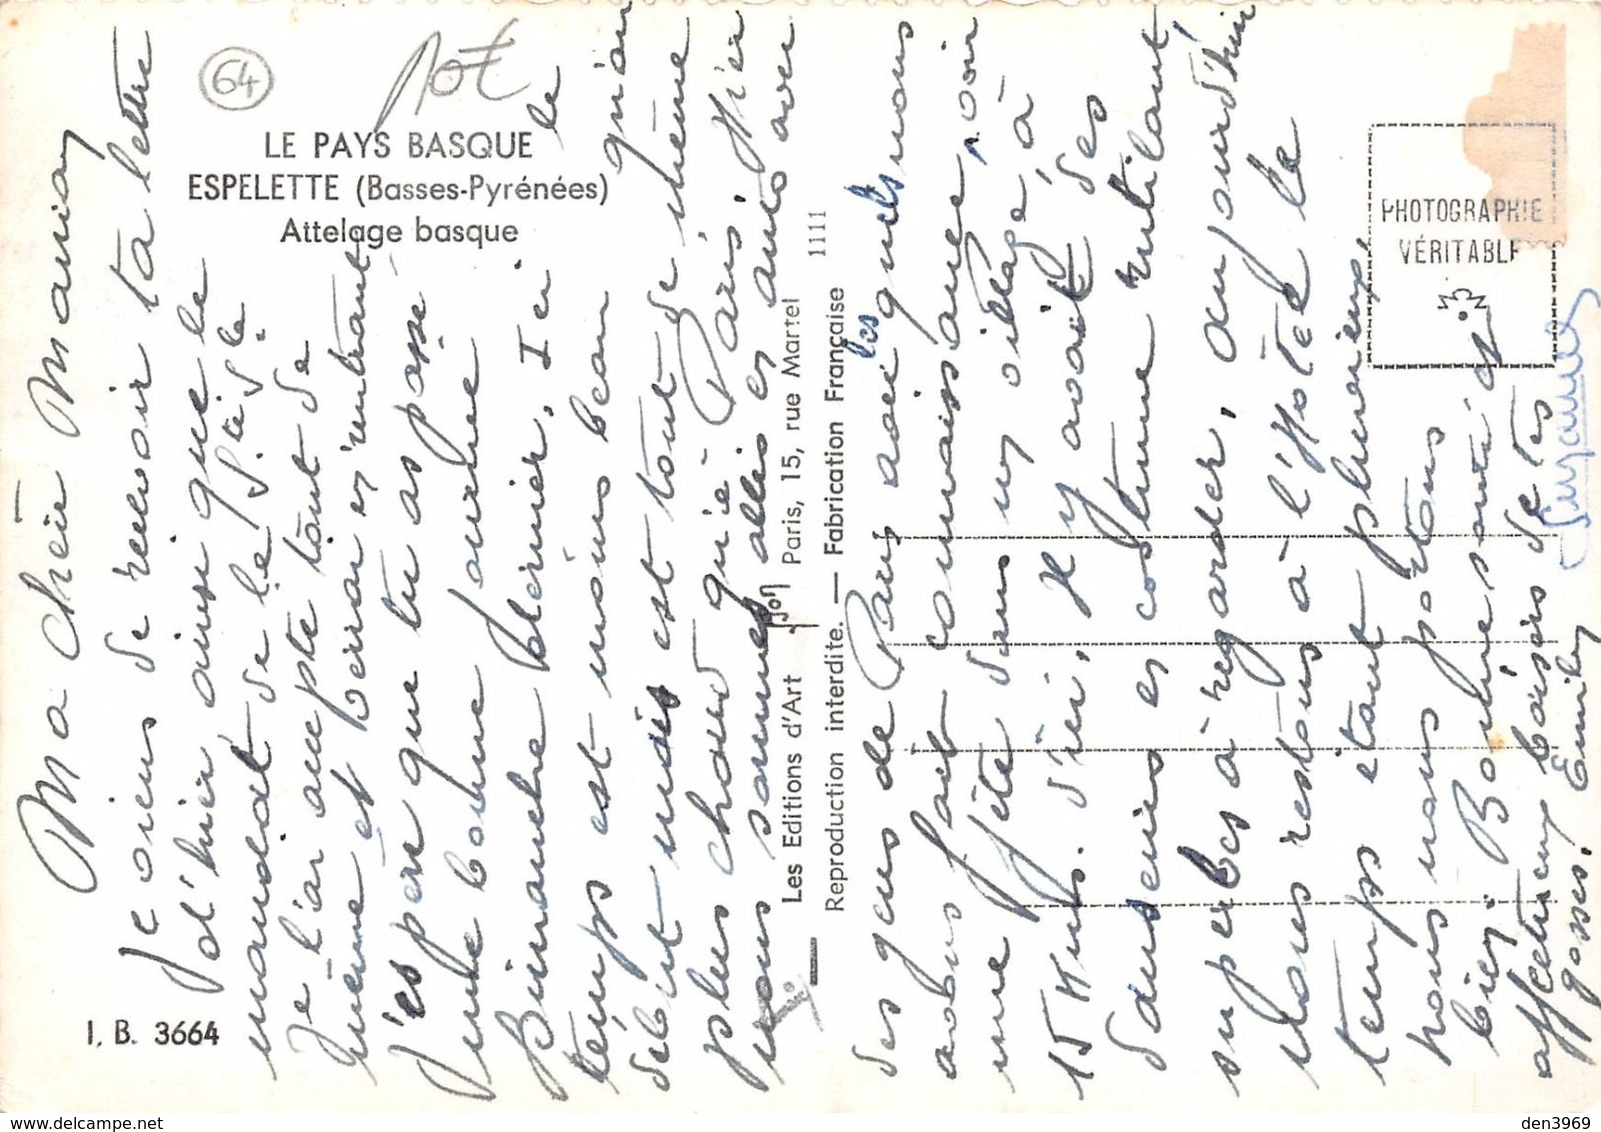 64
pot
LE PAYS BASQUE
ESPELETTE (Basses-Pyrénées)
Attelage basque
I. B. 3664
Ma chère Maman
Je viens de recevoir ta lettre
d'hier ainsi que le
mandat de le
Je l'ai accepte tout de
même et en rentrant
J'espère que tu as passé
une bonne journée
Dimanche dernier. Ici le
temps est moins beau qu'au
début mais est tout de même
plus chaud qu'à Paris. Hier
nous sommes allés avec
Les Editions d'Art Yvon Paris, 15, rue Martel 1111
Reproduction interdite. — Fabrication Française
des gens de Paris avec les quels nous
avons fait connaissance, voir
une fête dans un village, à
15 Kms. d'ici, il y avait des
danseurs en costume rutilant
superbes à regarder, aujourd'hui
nous restons à l'Hôtel le
temps étant pluvieux,
nous nous portons
bien. Bonne santé a
affectueux baisers de tes
gosses. Emile
Suzanne
PHOTOGRAPHIE
VÉRITABLE
den3969